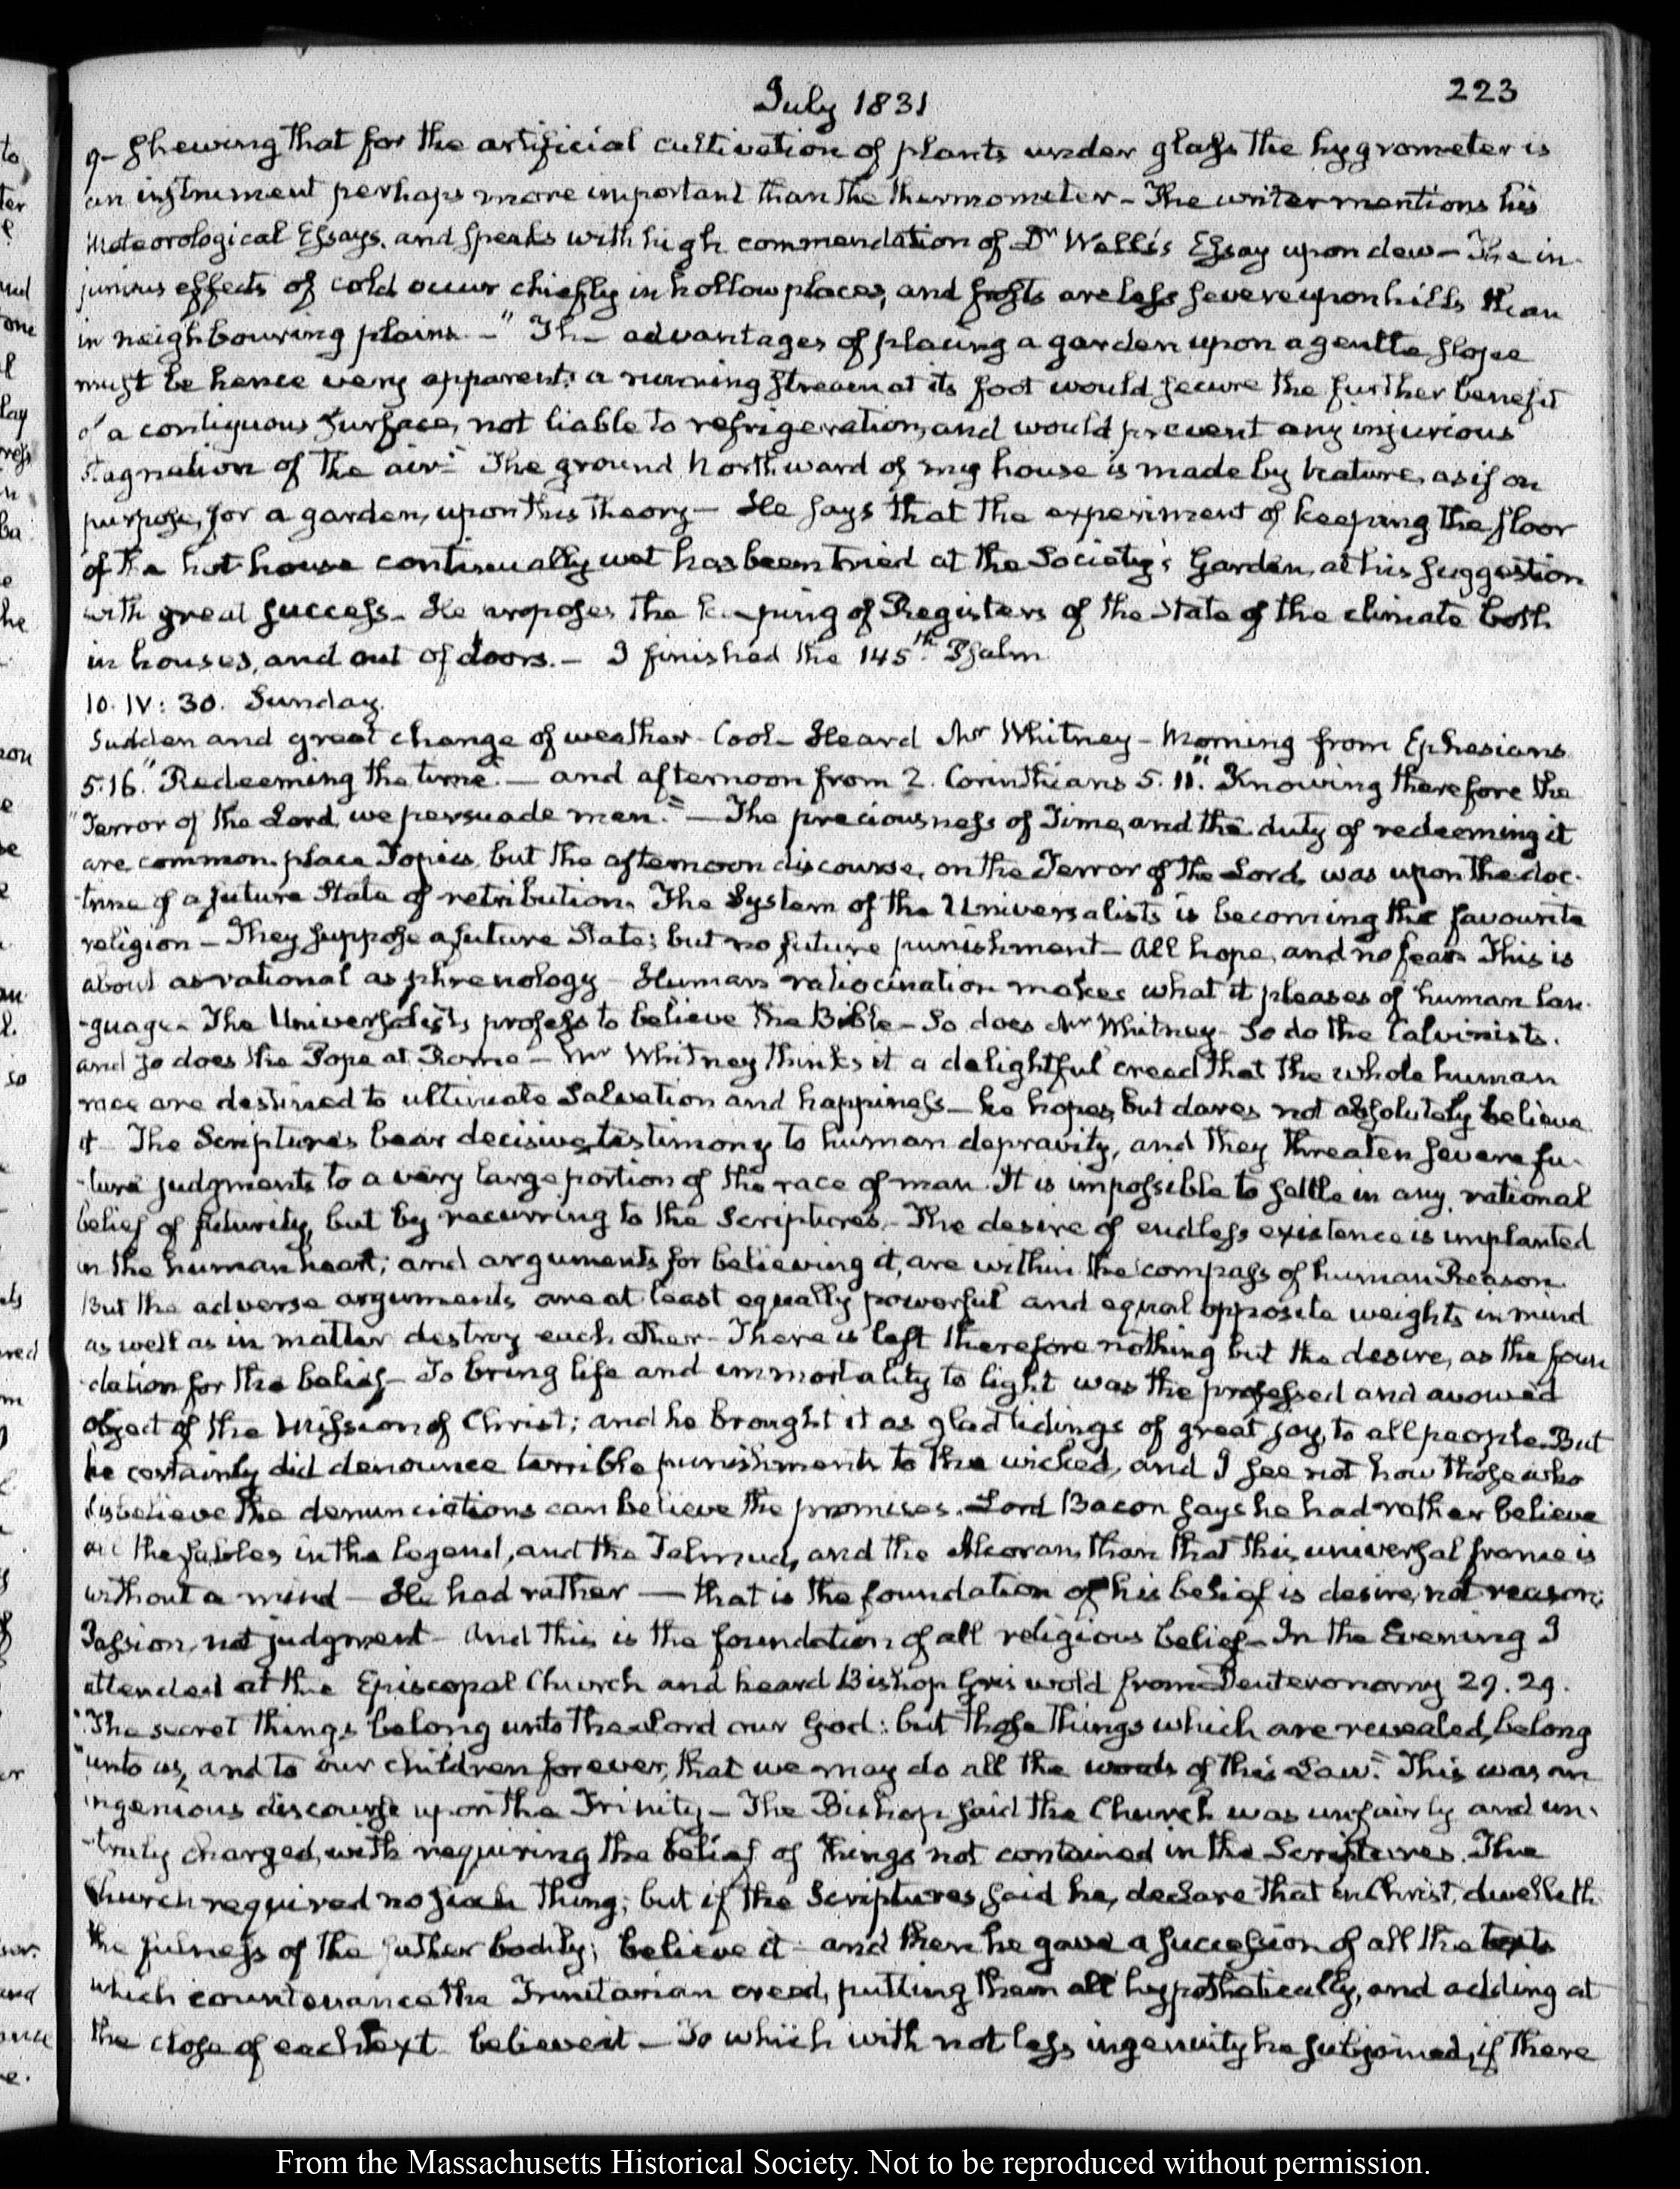 July 1831
223
9— shewing that for the artificial cultivation of plants under glass the hygrometer is
an instrument perhaps more important than the thermometer— The writer mentions his
Meteorological Essays, and speaks with high commendation of Dr Wells's Essay upon dew— The in-
jurious effects of cold occur chiefly in hollow places, and frosts are less severe upon hills than
in neighbouring plains.—" The advantages of placing a garden upon a gentle slope
must be hence very apparent: a running stream at its foot would secure the further benefit
of a contiguous surface, not liable to refrigeration, and would prevent any injurious
stagnation of the air." The ground northward of my house is made by nature, as if on
purpose, for a garden, upon this theory— He says that the experiment of keeping the floor
of the hot house continually wet has been tried at the Society's Garden, at his suggestion
with great success— He proposes the keeping of Registers of the state of the climate both
in houses, and out of doors.— I finished the 145th. Psalm
10. IV: 30. Sunday.
Sudden and great change of weather— Cool— Heard Mr Whitney— Morning from Ephesians
5.16. "Redeeming the time."— and afternoon from 2. Corinthians 5. 11. "Knowing therefore the
"Terror of the Lord, we persuade men."— The preciousness of Time, and the duty of redeeming it
are common-place Topics, but the afternoon discourse, on the Terror of the Lord, was upon the doc-
-trine of a future State of retribution. The System of the Universalists is becoming the favourite
religion— They suppose a future State; but no future punishment— All hope, and no fear. This is
about as rational as phrenology— Human ratiocination makes what it pleases of human lan-
-guage— The Universalists profess to believe the Bible— So does Mr Whitney— So do the Calvinists.
and so does the Pope at Rome— Mr Whitney thinks it a delightful creed that the whole human
race are destined to ultimate Salvation and happiness— he hopes, but dares not absolutely believe
it— The Scriptures bear decisive testimony to human depravity, and they threaten severe fu-
-ture judgments to a very large portion of the race of man. It is impossible to settle in any rational
belief of futurity, but by recurring to the Scriptures.— The desire of endless existence is implanted
in the human heart; and arguments for believing it, are within the compass of human Reason.
But the adverse arguments are at least equally powerful and equal opposite weights in mind
as well as in matter destroy each other— There is left therefore nothing but the desire, as the foun
-dation for the belief— To bring life and immortality to light was the professed and avowed
object of the Mission of Christ; and he brought it as glad tidings of great joy, to all people. But
he certainly did denounce terrible punishments to the wicked, and I see not how those who
disbelieve the denunciations can believe the promises. Lord Bacon says he had rather believe
all the fables in the legend, and the Talmud, and the Alcoran, than that this universal frame is
without a mind— He had rather— that is the foundation of his belief is desire, not reason;
Passion, not judgment— And this is the foundation of all religious belief— In the Evening I
attended at the Episcopal Church and heard Bishop Griswold from Deuteronomy 29. 29.
"The secret things belong unto the Lord our God: but those things which are revealed, belong
"unto us, and to our children forever, that we may do all the words of this Law." This was an
ingenious discourse upon the Trinity— The Bishop said the Church was unfairly and un-
-truly charged, with requiring the belief of things not contained in the Scriptures. The
Church required no such thing; but if the Scriptures, said he, declare that in Christ, dwelleth
the fulness of the father bodily; believe it— and then he gave a succession of all the texts
which countenance the Trinitarian creed, putting them all hypothetically, and adding at
the close of each text believe it— To which with not less ingenuity he subjoined, if there
From the Massachusetts Historical Society. Not to be reproduced without permission.